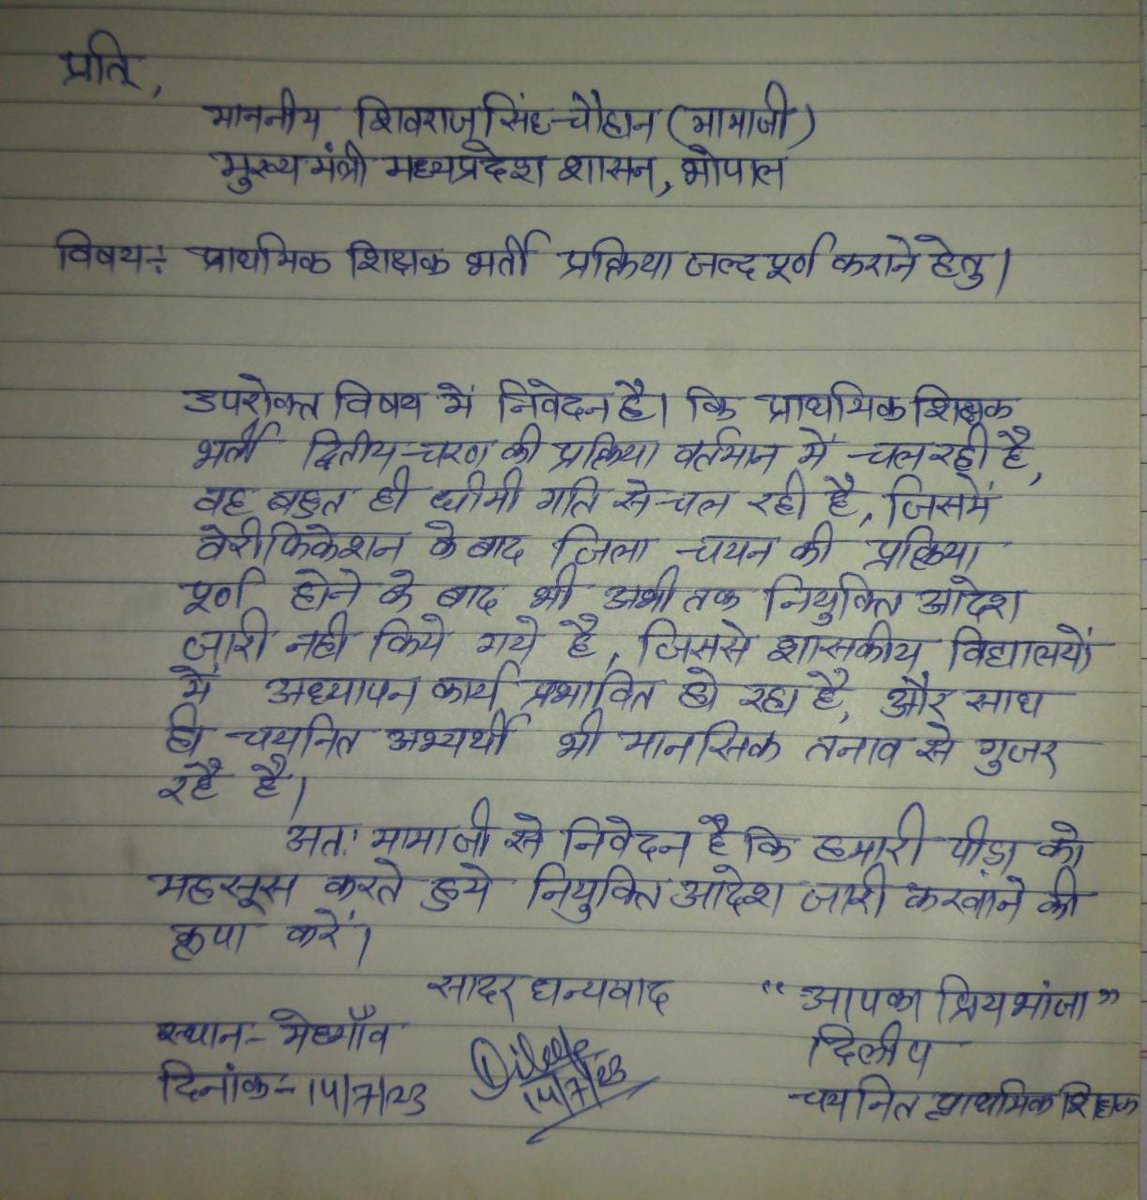 प्रति,
माननीय शिवराज सिंह चौहान (मामाजी)
मुख्यमंत्री मध्यप्रदेश शासन, भोपाल
विषय:- प्राथमिक शिक्षक भर्ती प्रक्रिया जल्द पूर्ण कराने हेतु।
उपरोक्त विषय में निवेदन है। कि प्राथमिक शिक्षक
भर्ती द्वितीय चरण की प्रक्रिया वर्तमान में चल रही है,
वह बहुत ही धीमी गति से चल रही है, जिसमें
वेरीफिकेशन के बाद जिला चयन की प्रक्रिया
पूर्ण होने के बाद भी अभी तक नियुक्ति आदेश
जारी नही किये गये है, जिससे शासकीय विद्यालयों
में अध्यापन कार्य प्रभावित हो रहा है, और साथ
ही चयनित अभ्यर्थी भी मानसिक तनाव से गुजर
रहै है।
अत: मामाजी से निवेदन है कि हमारी पीड़ा को
महसूस करते हुये नियुक्ति आदेश जारी करवाने की
कृपा करें।
सादर धन्यवाद "आपका प्रिय भांजा"
स्थान - मेहगाँव Dileep दिलीप
दिनांक - 14/7/23 14/7/23 चयनित प्राथमिक शिक्षक